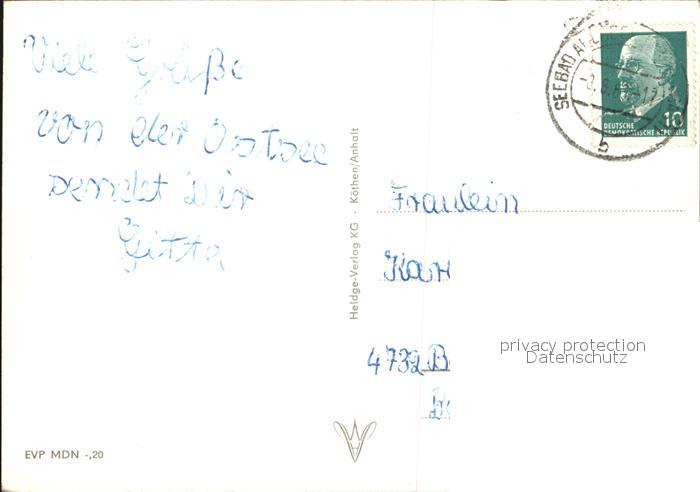 Viele Grüße
von der Ostsee
sendet Dir
Gitta
EVP MDN -,20
Heldge-Verlag KG · Köthen/Anhalt
SEEBAD
DEUTSCHE
DEMOKRATISCHE REPUBLIK
10
b
Fräulein
4732
privacy protection
Datenschutz